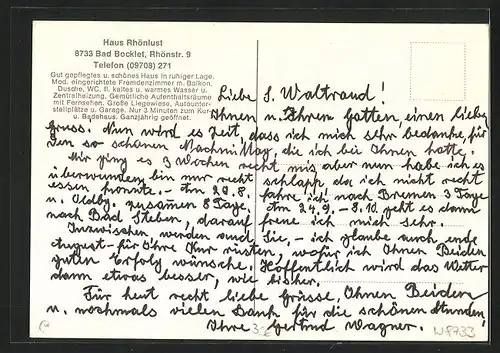 Haus Rhönlust
8733 Bad Bocklet, Rhönstr. 9
Telefon (09708) 271
Gut gepflegtes u. schönes Haus in ruhiger Lage.
Mod. eingerichtete Fremdenzimmer m. Balkon,
Dusche, WC, fl. kaltes u. warmes Wasser u.
Zentralheizung. Gemütliche Aufenthaltsräume
mit Fernsehen. Große Liegewiese, Autounter-
stellplätze u. Garage. Nur 3 Minuten zum Kur-
u. Badehaus. Ganzjährig geöffnet.
Liebe S. Waltraud!
Ihnen u. Ihrem Gatten, einen lieben
Gruss. Nun wird es Zeit, dass ich mich sehr bedanke, für
den so schönen Nachmittag, die ich bei Ihnen hatte.
Mir ging es 3 Wochen recht mis, aber nun habe ich es
überwunden, bin nur recht schlapp, da ich nicht recht
essen konnte. - Am 20.8. fahre ich nach Bremen 3 Tage
u. zusamen 8 Tage. Am 24.9. - 8.10. geht es dann
nach Bad Steben, darauf freue ich mich sehr.
Inzwischen werden auch Sie, - ich glaube auch ende
August - für Ihre Kur rüsten, wofür ich Ihnen Beiden
guten Erfolg wünsche. Hoffentlich wird das Wetter
dann etwas besser, wie bisher.
Für heut recht liebe Grüsse, Ihnen Beiden
u. nochmals vielen Dank für die schönen Stunden,
Ihre Gertrud Wagner.
W8733